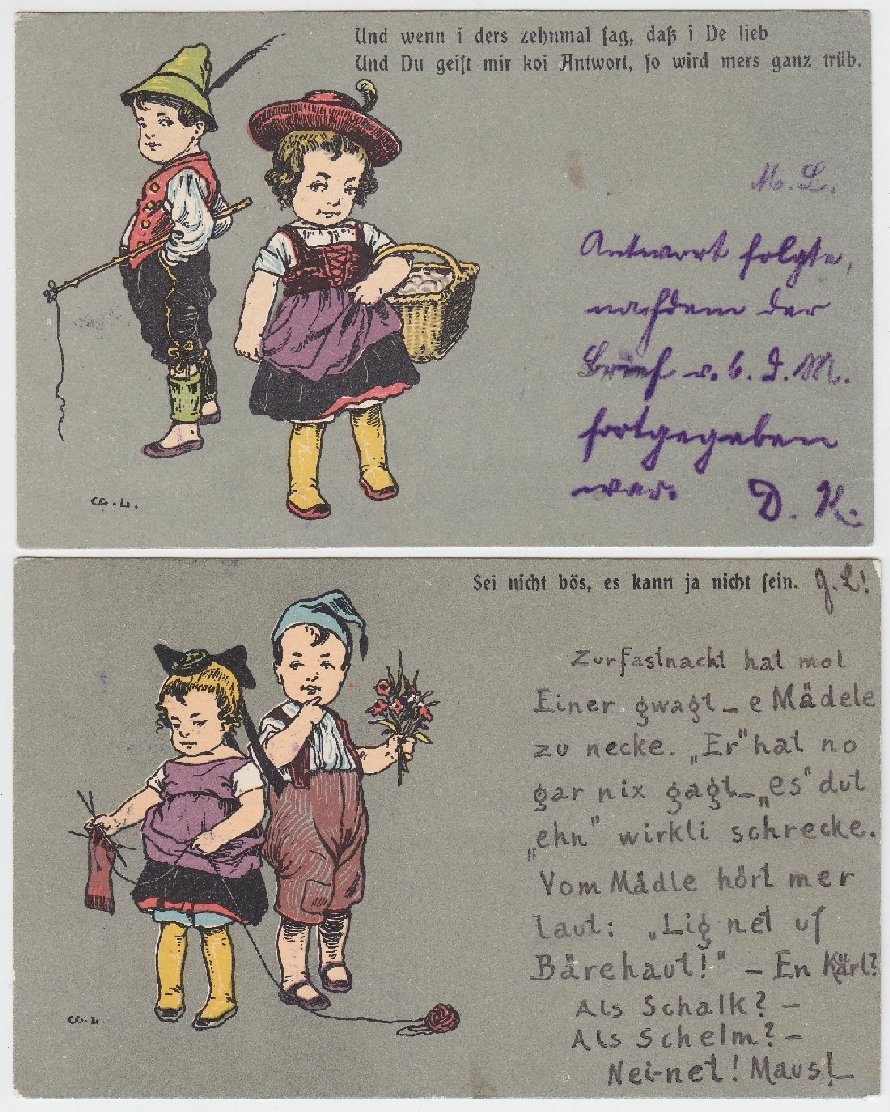 Und wenn i ders zehnmal sag, daß i De lieb
Und Du geist mir koi Antwort, so wird mers ganz trüb.
M. L.
Antwort folgte,
nachdem der
Brief v. 6. d. M.
fortgegeben
war. D. K.
CG. L.
Sei nicht bös, es kann ja nicht sein. J. L!
Zur Fastnacht hat mol
Einer gwagt – e Mädele
zu necke. „Er" hat no
gar nix gagt – „es" dut
„ehn" wirkli schrecke.
Vom Mädle hört mer
laut: „Lig net uf
Bärehaut!" – En Kärl?
Als Schalk? –
Als Schelm? –
Nei-net! Maust
CG. L.